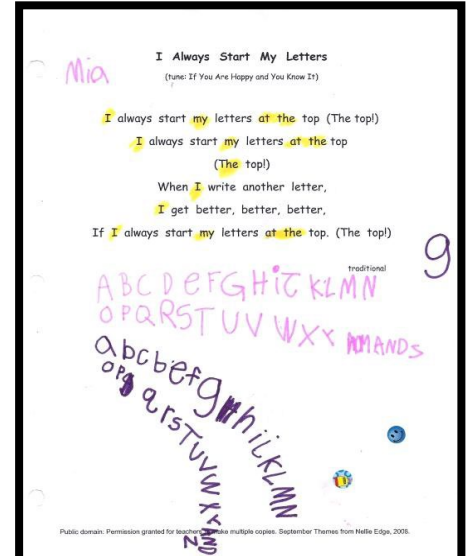 I Always Start My Letters
Mia
(tune: If You Are Happy and You Know It)
I always start my letters at the top (The top!)
I always start my letters at the top
(The top!)
When I write another letter,
I get better, better, better,
If I always start my letters at the top. (The top!)
traditional
9
ABCDeFGHiJKLMN
OPQRSTUVWXY ANDS
abcbefg hiiKLMN
OPq qrsTUVWXYAND
Z
Public domain: Permission granted for teachers make multiple copies. September Themes from Nellie Edge, 2008.